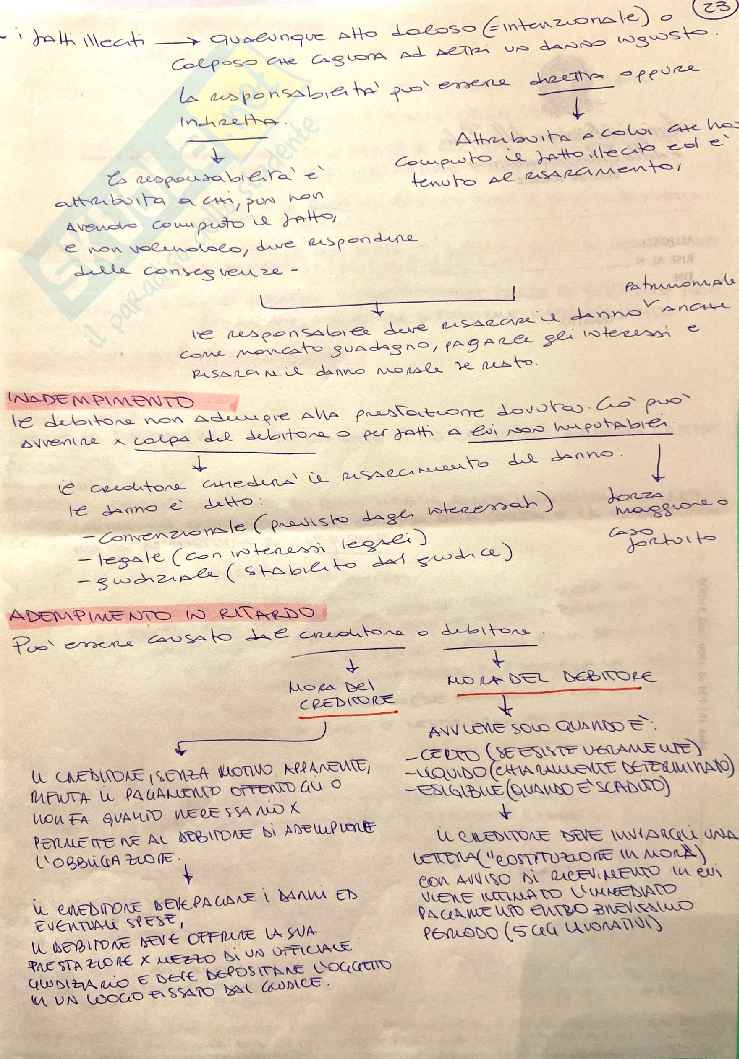 23
- i fatti illeciti → qualunque atto doloso (=intenzionale) o
colposo che cagiona ad altri un danno ingiusto.
La responsabilità può essere diretta oppure
indiretta.
Attribuita a colui che ha
compiuto il fatto illecito ed è
tenuto al risarcimento,
La responsabilità è
attribuita a chi, pur non
avendo compiuto il fatto,
e non volendolo, deve rispondere
delle conseguenze -
patrimoniale
Il responsabile deve risarcire il danno ✓ anche
come mancato guadagno, pagare gli interessi e
risarcire il danno morale se reato.
INADEMPIMENTO
Il debitore non adempie alla prestazione dovuta. Ciò può
avvenire x colpa del debitore o per fatti a lui non imputabili
Il creditore chiederà il risarcimento del danno.
Il danno è detto:
- convenzionale (previsto dagli interessati)
- legale (con interessi legali)
- giudiziale (stabilito dal giudice)
forza
maggiore o
caso
fortuito
ADEMPIMENTO IN RITARDO
Può essere causato dal creditore o debitore.
MORA DEL
CREDITORE
MORA DEL DEBITORE
IL CREDITORE, SENZA MOTIVO APPARENTE,
RIFIUTA IL PAGAMENTO OFFERTOGLI O
NON FA QUANTO NECESSARIO X
PERMETTERE AL DEBITORE DI ADEMPIERE
L'OBBLIGAZIONE.
IL CREDITORE DEVE PAGARE I DANNI ED
EVENTUALI SPESE,
IL DEBITORE DEVE OFFRIRE LA SUA
PRESTAZIONE X MEZZO DI UN UFFICIALE
GIUDIZIARIO E DEVE DEPOSITARE L'OGGETTO
IN UN LUOGO FISSATO DAL GIUDICE.
AVVIENE SOLO QUANDO È:
- CERTO (SE ESISTE VERAMENTE)
- LIQUIDO (CHIARAMENTE DETERMINATO)
- ESIGIBILE (QUANDO È SCADUTO)
IL CREDITORE DEVE INVIARGLI UNA
LETTERA ("COSTITUZIONE IN MORA)
CON AVVISO DI RICEVIMENTO IN CUI
VIENE INTIMATO L'IMMEDIATO
PAGAMENTO ENTRO BREVISSIMO
PERIODO (5 GG LAVORATIVI)